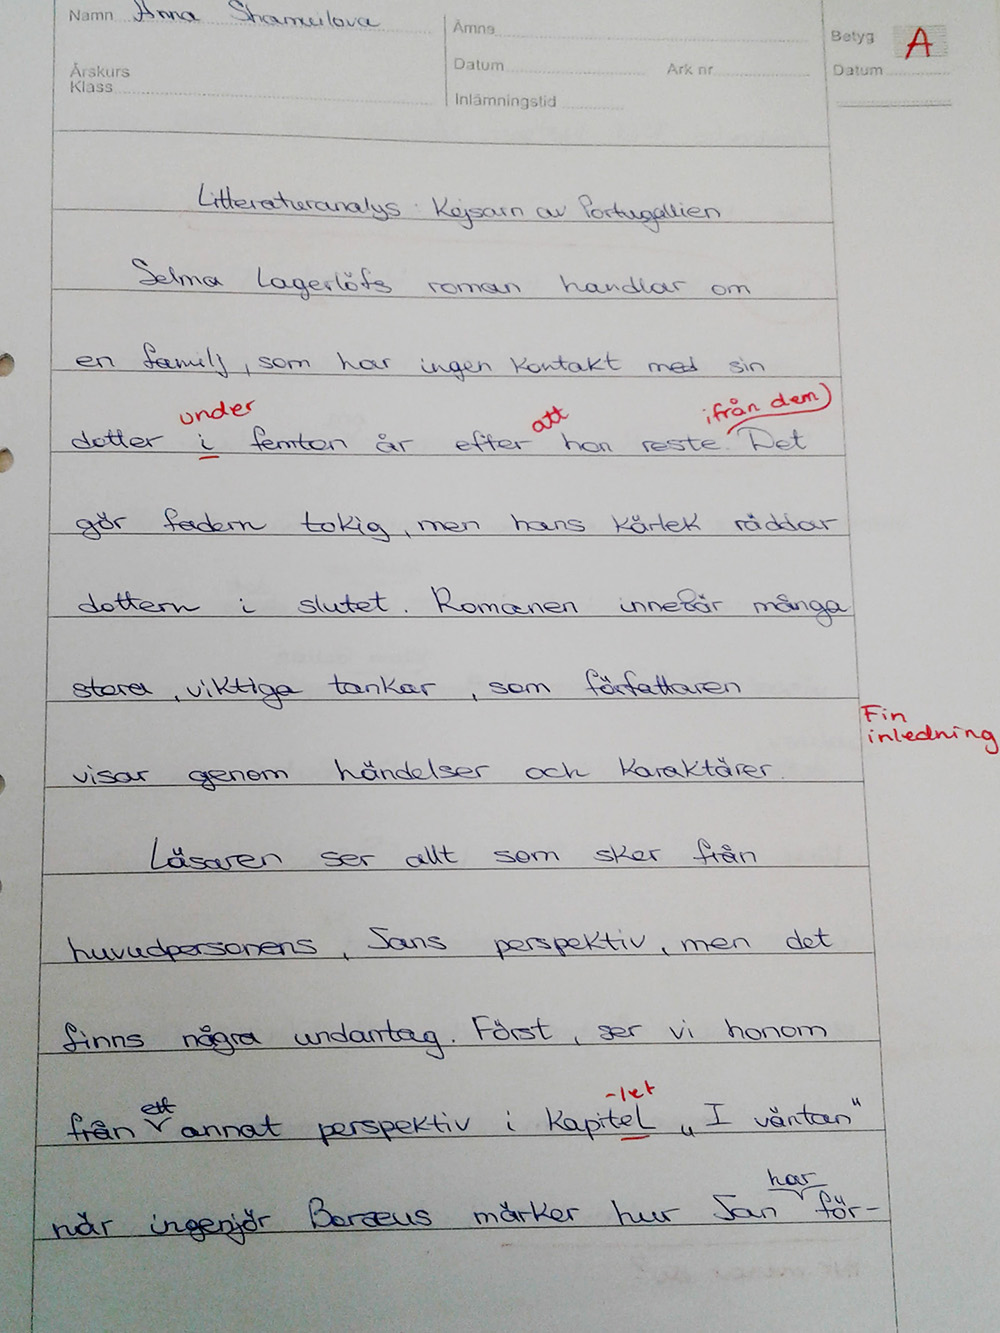 Namn Anna Shamuilova
Ämne
Betyg A
Datum
Ark nr
Datum
Årskurs
Klass
Inlämningstid
Litteraturanalys: Kejsarn av Portugallien
Selma Lagerlöfs roman handlar om
en familj, som har ingen kontakt med sin
under att ifrån dem)
dotter i femton år efter hon reste. Det
gör fadern tokig, men hans kärlek räddar
dottern i slutet. Romanen innebär många
stora, viktiga tankar, som författaren
Fin
inledning
visar genom händelser och karaktärer.
Läsaren ser allt som sker från
huvudpersonens, Jans perspektiv, men det
finns några undantag. Först, ser vi honom
ett -let
från annat perspektiv i kapitel „I väntan“
har
när ingenjör Boræus märker hur Jan för-